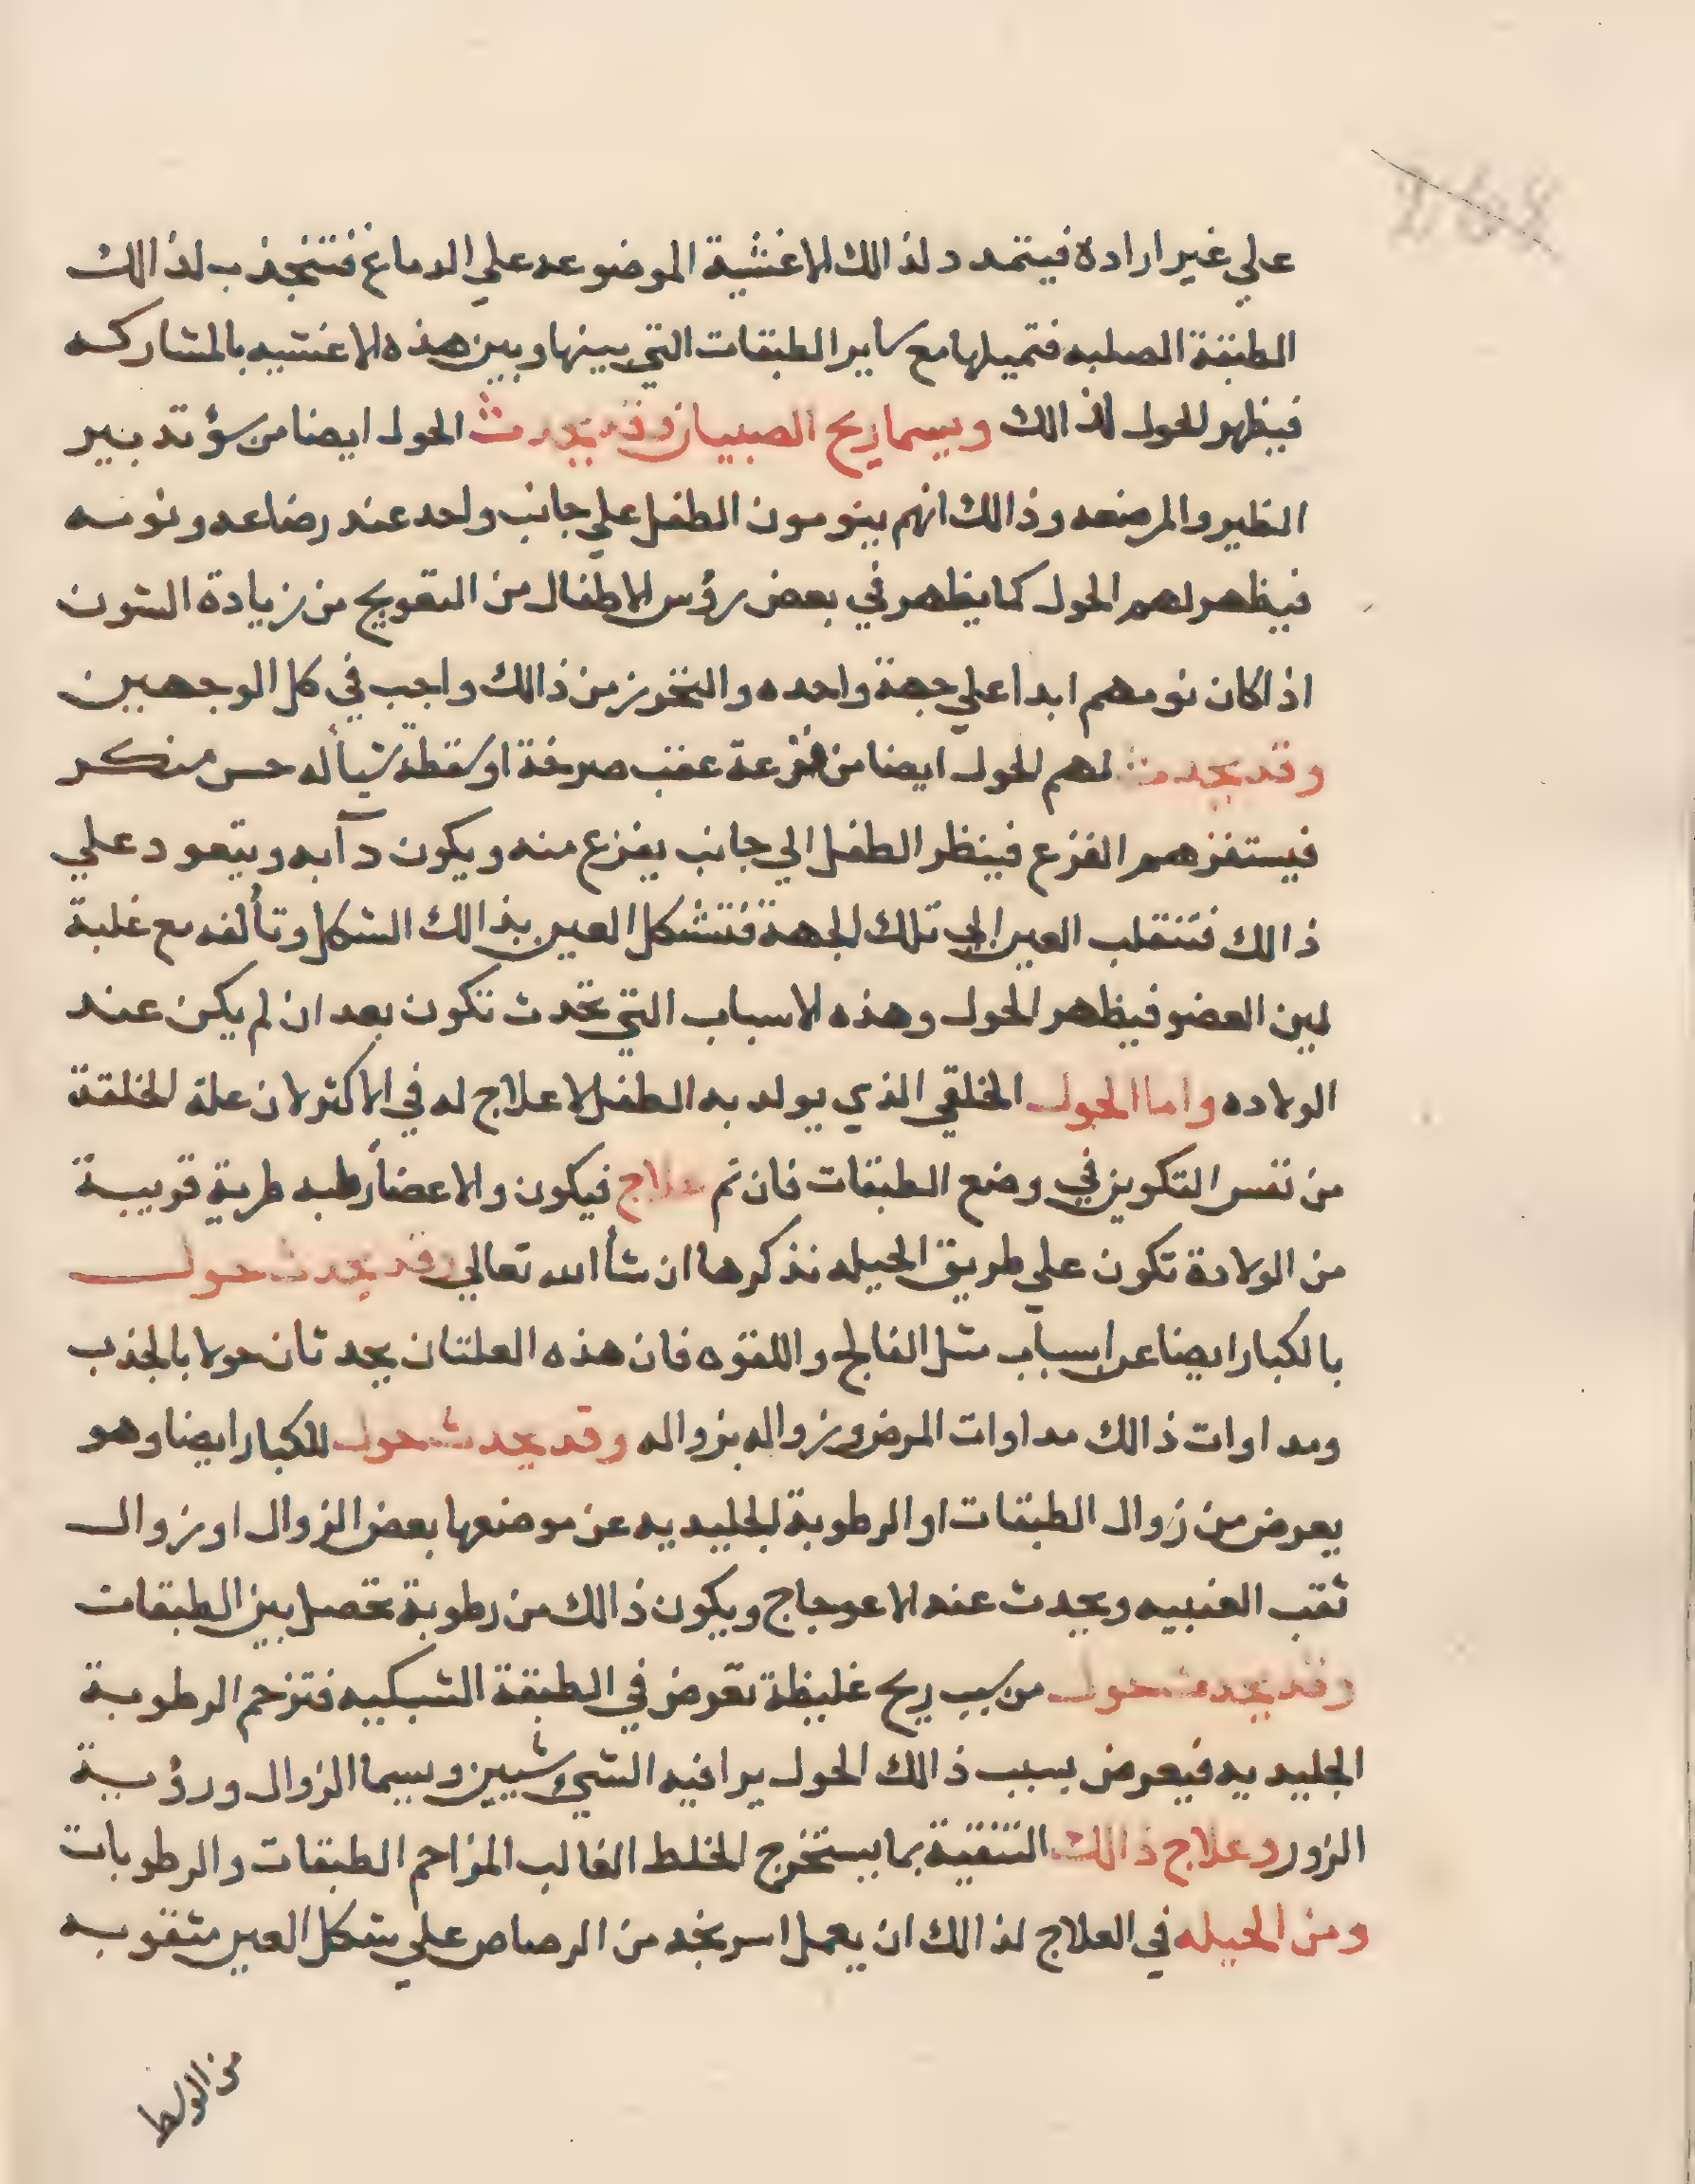 علي غير ارادة فيتمدد لذالك الاغشية الموضوعه علي الدماغ فتنجذب لذالك
الطبقة الصلبه فتميلها مع ساير الطبقات التي بينها وبين هذه الاغشيه بالمشاركه
فيظهر الحول لذالك ويسما ريح الصبيان وقد يحدث الحول ايضا من سؤ تدبير
الظير والمرضعه وذالك انهم ينومون الطفل علي جانب واحد عند رضاعه ونومه
فيظهر لهم الحول كما يظهر في بعض رؤس الاطفال من التعويج من زيادة السون
اذا كان نومهم ابدا علي جهة واحده والتحرز من ذالك واجب في كل الوجهين
وقد يحدث لهم الحول ايضا من فزعة عقب صرخة او سقطة شيأ له حس منكر
فيستفزهم الفزع فينظر الطفل الي جانب يفزع منه ويكون دآبه ويتعود علي
ذالك فتنقلب العين الي تلك الجهة فتتشكل العين بذالك الشكل وتألفه مع غلبة
لين العضو فيظهر الحول وهذه الاسباب التي تحدث تكون بعد ان لم يكن عند
الولاده واما الحول الخلقي الذي يولد به الطفل لا علاج له في الاكثر لان علة الخلقة
من نفس التكوين في وضع الطبقات فان تم علاج فيكون والاعضأ رطبه طرية قريبة
من الولادة تكون علي طريق الحيله نذكرها ان شأ الله تعالي وقد يحدث حول
بالكبار ايضا عن اسباب مثل الفالج واللقوه فان هذه العلتان يحدثان حولا بالجذب
ومداوات ذالك مداوات المرض وزواله بزواله وقد يحدث حول للكبار ايضا وهو
يعرض من زوال الطبقات او الرطوبة الجليديه عن موضعها بعض الزوال او زوال
ثقب العنبيه ويحدث عنه الاعوجاج ويكون ذالك من رطوبة تحصل بين الطبقات
وقد يحدث حول من سبب ريح غليظة تعرض في الطبقة الشبكيه فتزحم الرطوبة
الجليديه فيعرض بسبب ذالك الحول يرا فيه الشيء شيين ويسما الزوال ورؤية
الزور وعلاج ذالك التنقية بما يستخرج الخلط الغالب المزاحم الطبقات والرطوبات
ومن الحيله في العلاج لذالك ان يعمل اسرنجه من الرصاص علي شكل العين مثقوبه
من الوسط